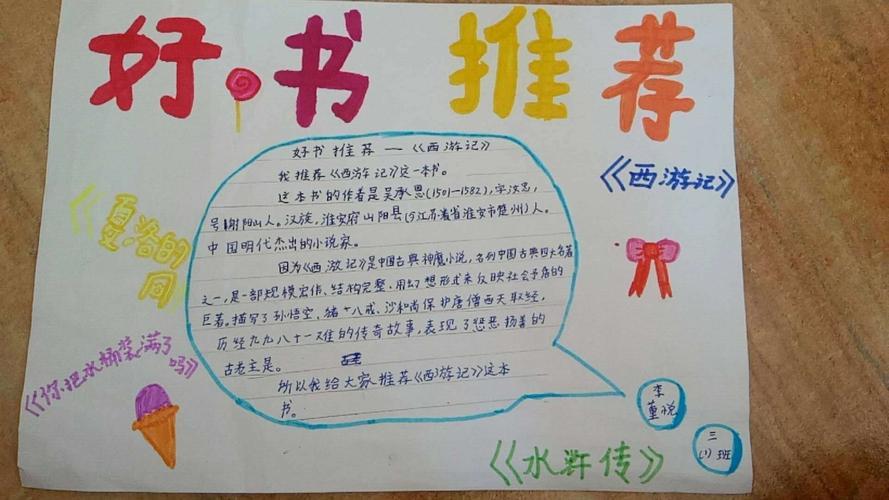 好书推荐
好书推荐—《西游记》
我推荐《西游记》这一本书。
这本书的作者是吴承恩(1501—1582),字汝忠,
号射阳山人。汉族,淮安府山阳县(今江苏省淮安市楚州)人。
中国明代杰出的小说家。
因为《西游记》是中国古典神魔小说,名列中国古典四大名著
之一,是一部规模宏伟、结构完整、用幻想形式来反映社会矛盾的
巨著。描写了孙悟空、猪八戒、沙和尚保护唐僧西天取经,
历经九九八十一难的传奇故事,表现了惩恶扬善的
古老主是。
所以我给大家推荐《西游记》这本
书。
《西游记》
《夏洛的
网
《你把水桶装满了吗》
《水浒传》
李
董悦
三
(1)班